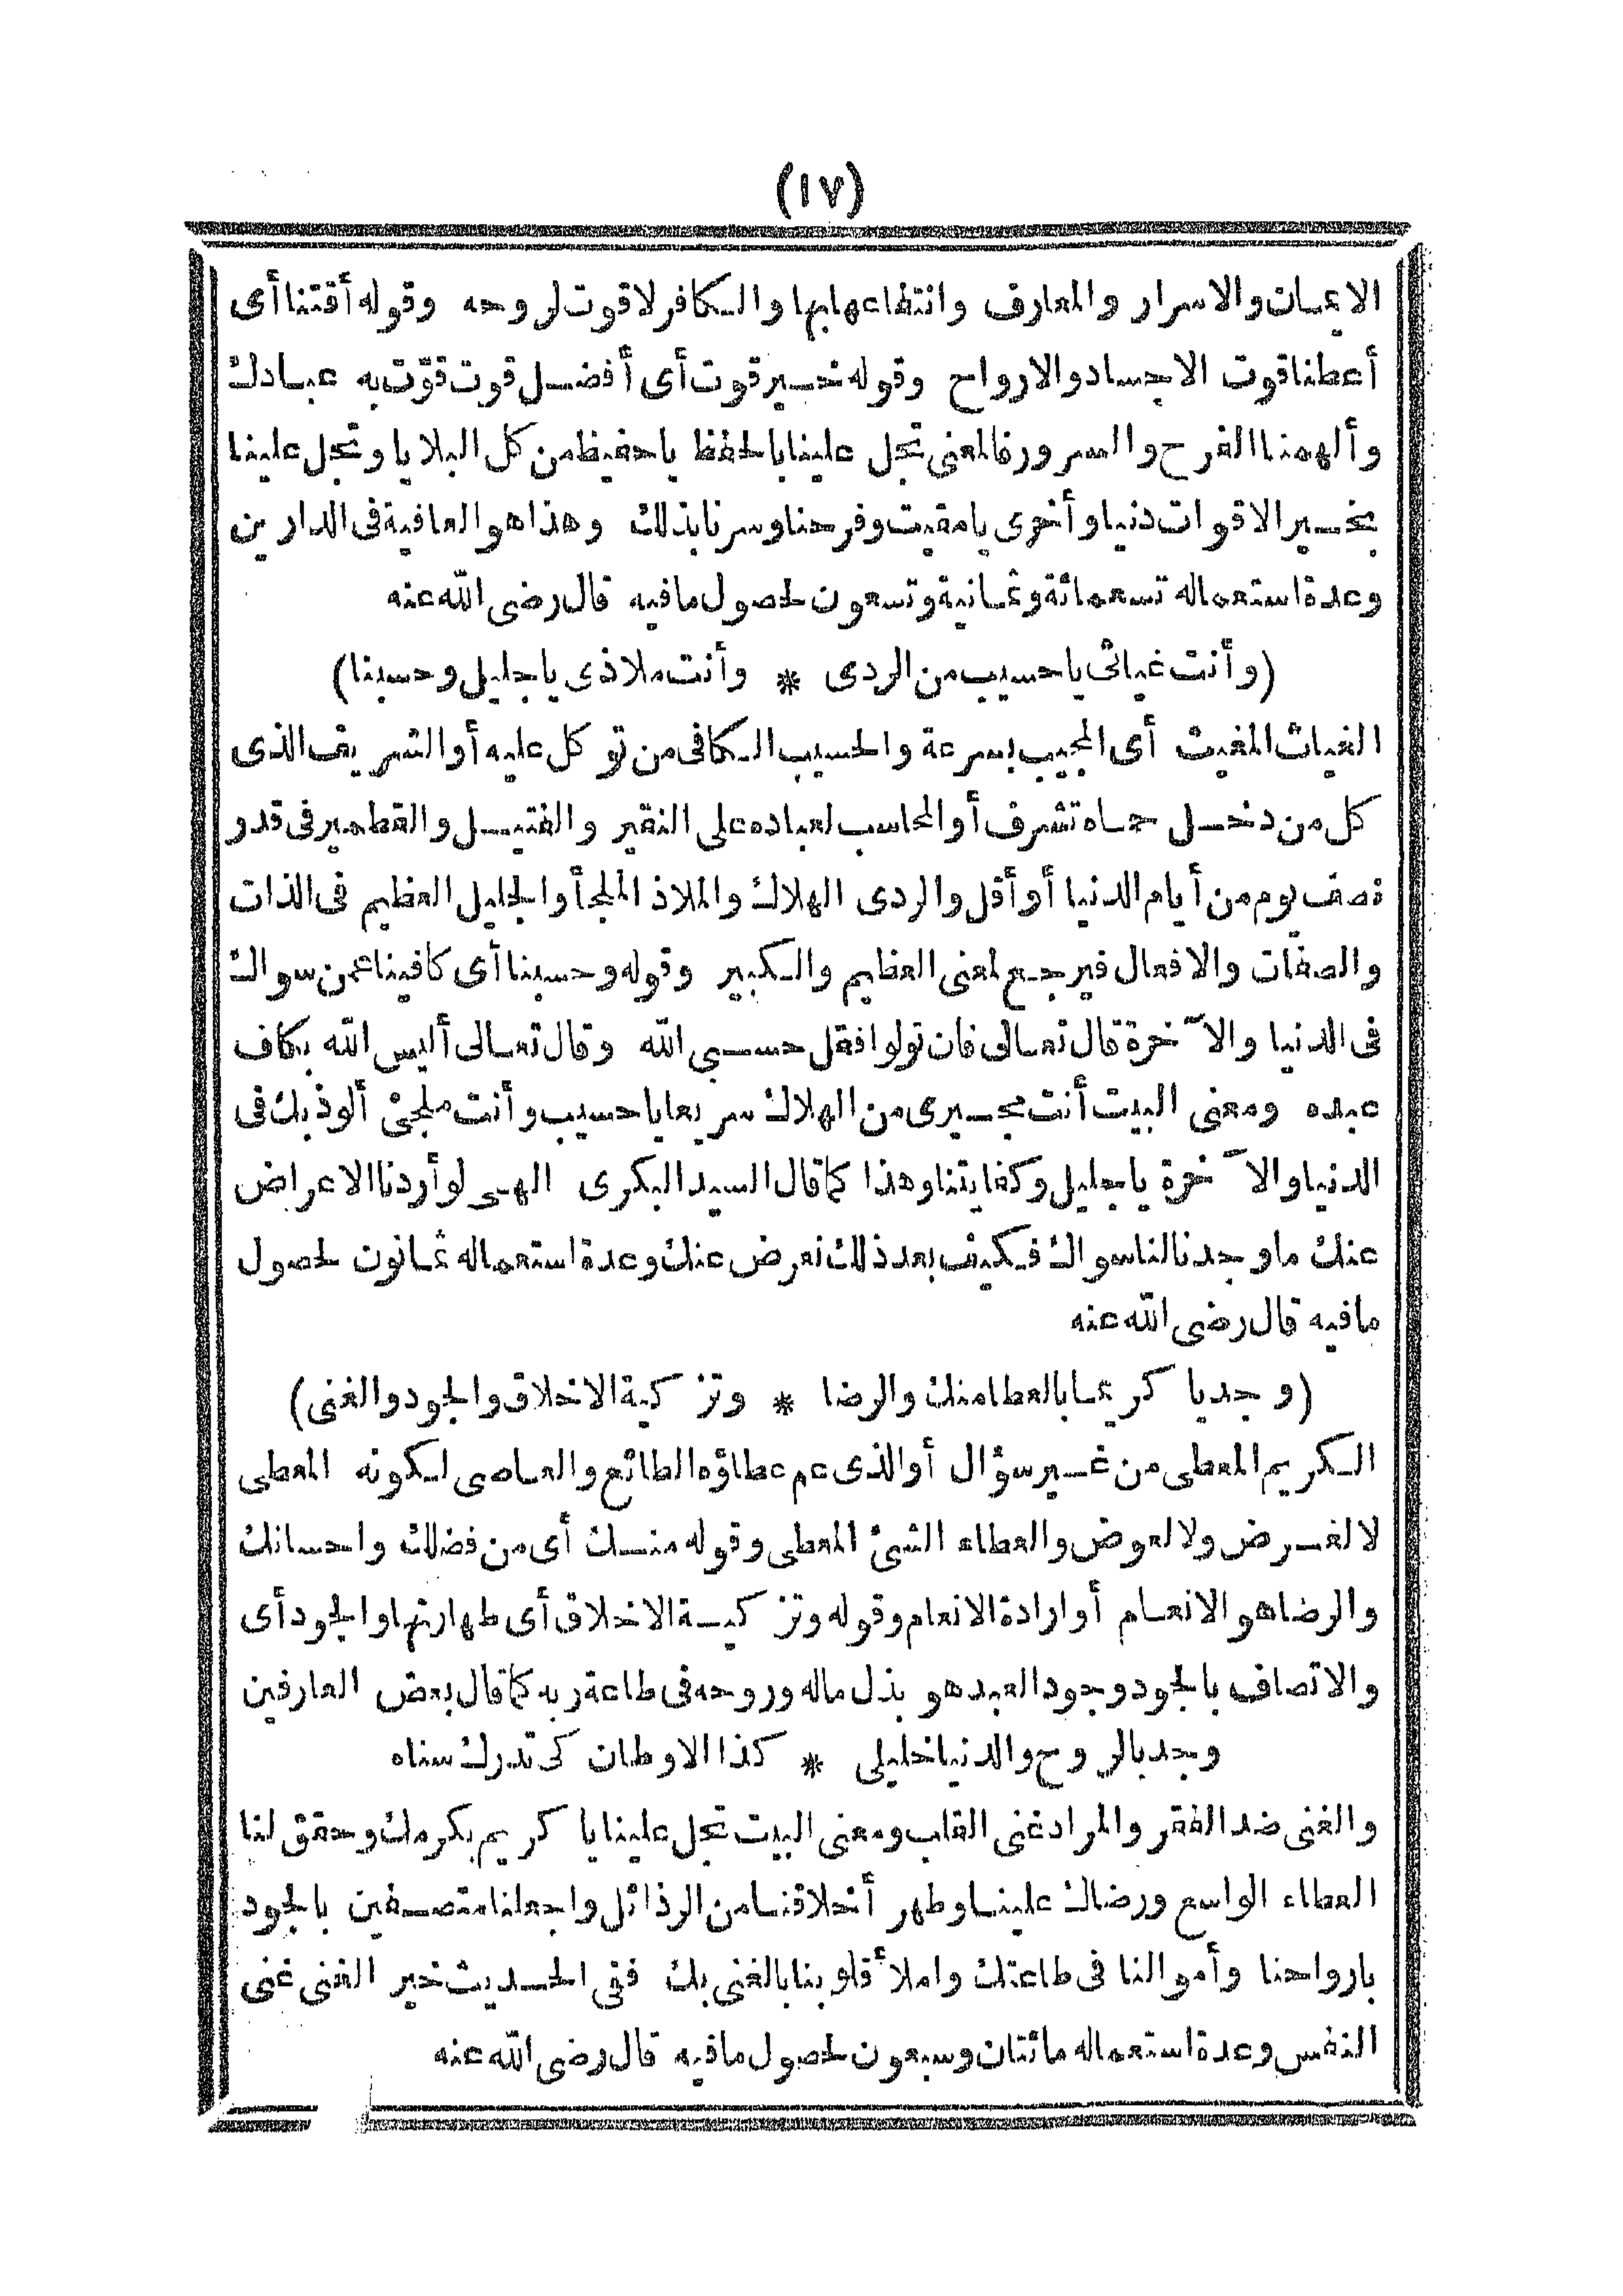 (١٧)
الايمان والاسرار والمعارف وانتفاعها بها والكافر لا قوت لروحه وقوله أقتنا أى
أعطنا قوت الاجساد والارواح وقوله خير قوت أى أفضل قوت قوّت به عبادك
وألهمنا الفرح والسرور فالمعنى تجل علينا بالحفظ ياحفيظ من كل البلايا وتجل علينا
بخير الاقوات دنيا وأخرى يامقيت وفرحنا وسرنا بذلك وهذا هو العافية فى الدارين
وعدة استعماله تسعمائة وثمانية وتسعون لحصول مافيه قال رضى الله عنه
(وأنت غياثى ياحسيب من الردى * وأنت ملاذى ياجليل وحسبنا)
الغياث المغيث أى المجيب بسرعة والحسيب الكافى من توكل عليه أو الشريف الذى
كل من دخل حماه تشرف أو المحاسب لعباده على النقير والفتيل والقطمير فى قدر
نصف يوم من أيام الدنيا أو أقل والردى الهلاك والملاذ الملجأ والجليل العظيم فى الذات
والصفات والافعال فيرجع لمعنى العظيم والكبير وقوله وحسبنا أى كافينا عمن سواك
فى الدنيا والآخرة قال تعالى فان تولوا فقل حسبى الله وقال تعالى أليس الله بكاف
عبده ومعنى البيت أنت مجيرى من الهلاك سريعا ياحسيب وأنت ملجئ ألوذ بك فى
الدنيا والآخرة ياجليل وكفايتنا وهذا كما قال السيد البكرى الهى لو أردنا الاعراض
عنك ماوجدنا لنا سواك فكيف بعد ذلك نعرض عنك وعدة استعماله ثمانون لحصول
مافيه قال رضى الله عنه
(وجد يا كريما بالعطا منك والرضا * وتزكية الاخلاق والجود والغنى)
الكريم المعطى من غير سؤال أو الذى عم عطاؤه الطائع والعاصى لكونه المعطى
لا لغرض ولا لعوض والعطاء الشئ المعطى وقوله منك أى من فضلك واحسانك
والرضا هو الانعام أو ارادة الانعام وقوله وتزكية الاخلاق أى طهارتها والجود أى
والاتصاف بالجود وجود العبد هو بذل ماله وروحه فى طاعة ربه كما قال بعض العارفين
وجد بالروح والدنيا خليلى * كذا الاوطان كى تدرك سناه
والغنى ضد الفقر والمراد غنى القلب ومعنى البيت تجل علينا يا كريم بكرمك وحقق لنا
العطاء الواسع ورضاك علينا وطهر أخلاقنا من الرذائل واجعلنا متصفين بالجود
بارواحنا وأموالنا فى طاعتك واملأ قلوبنا بالغنى بك ففى الحديث خير الغنى غنى
النفس وعدة استعماله مائتان وسبعون لحصول مافيه قال رضى الله عنه